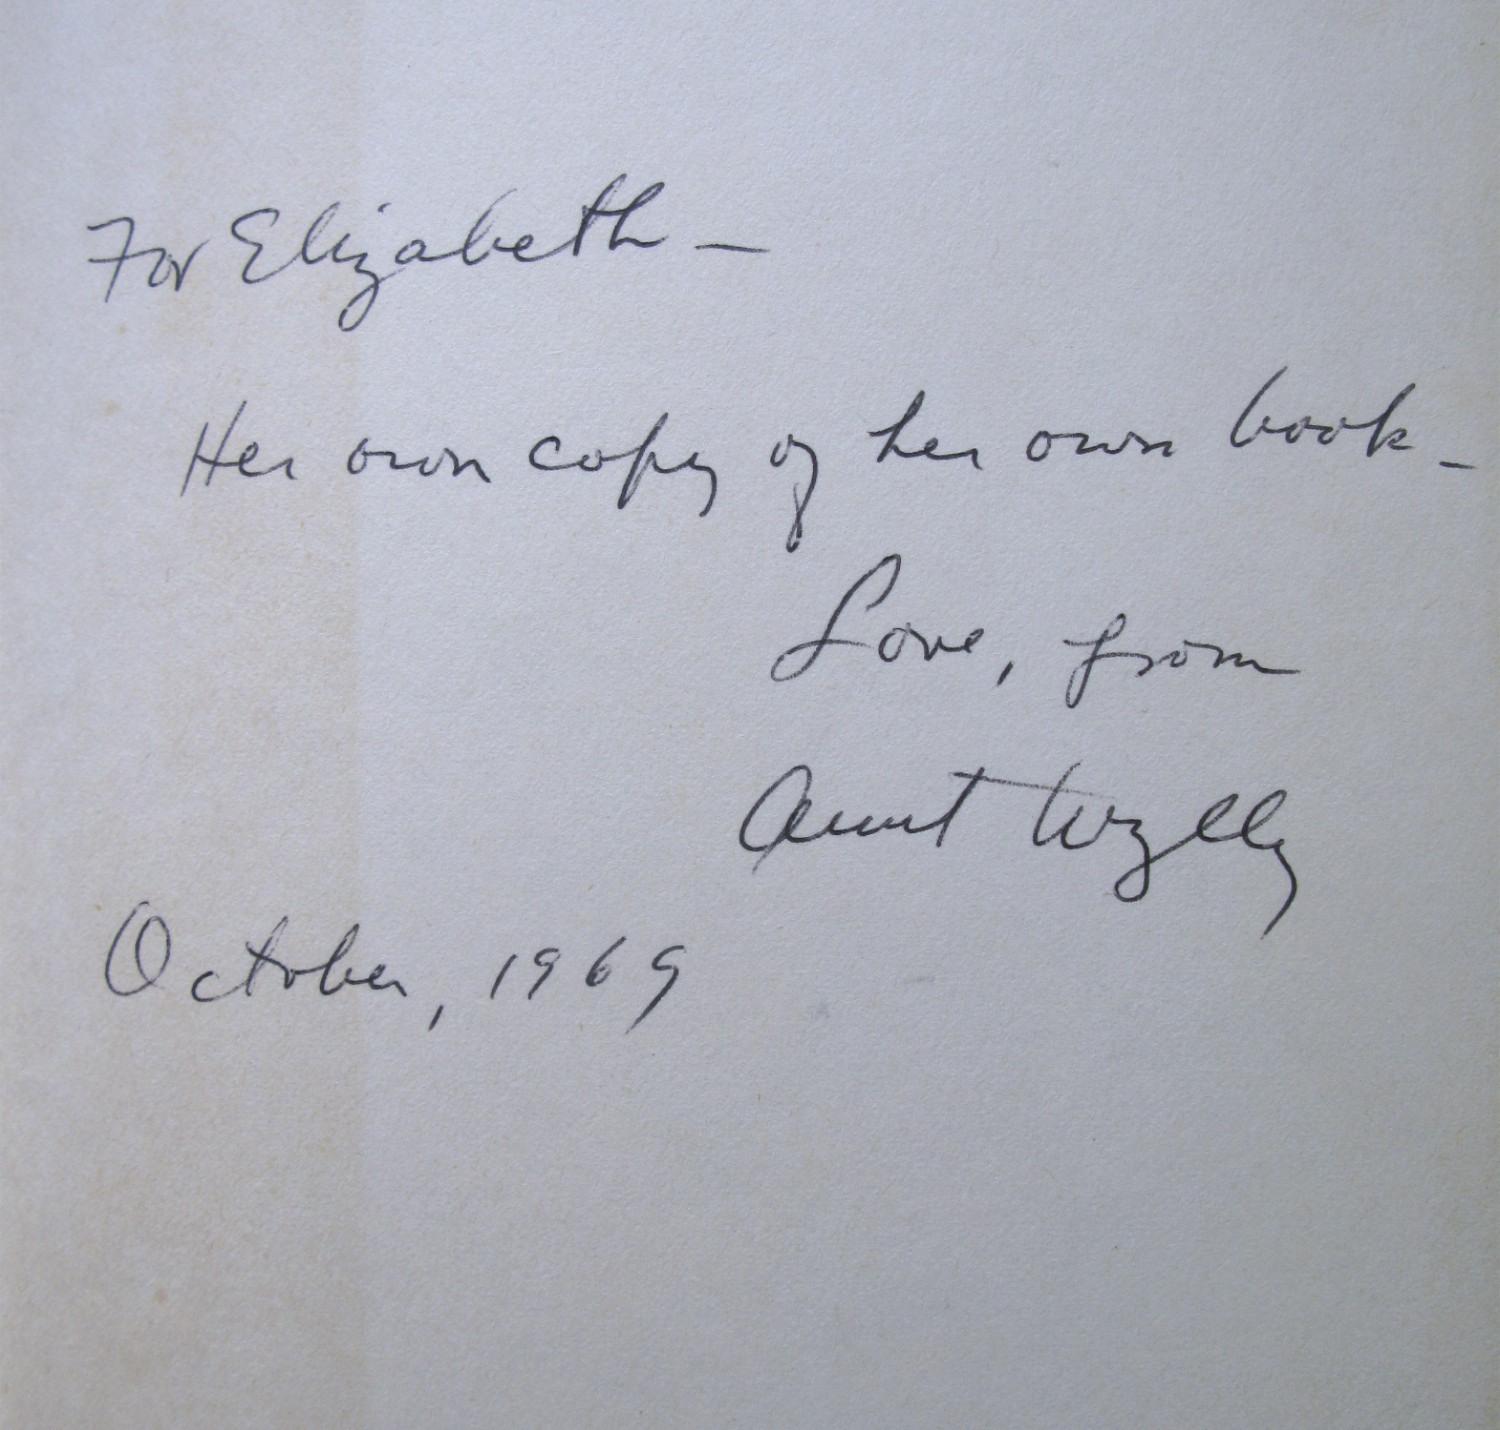 For Elizabeth —
Her own copy of her own book -
Love, from
Aunt Wylly
October, 1969